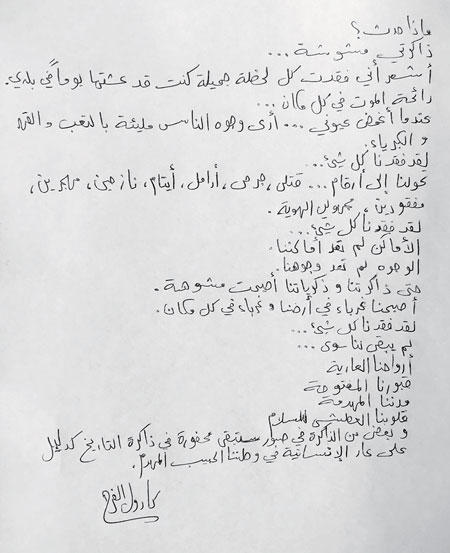 ماذا حدث؟
ذاكرتي مشوشة...
أشعر أني فقدت كل لحظة جميلة كنت قد عشتها يوماً في بلدي.
رائحة الموت في كل مكان...
عندما أغمض عيوني... أرى وجوه الناس مليئة بالتعب والقهر
والكبرياء.
لقد فقدنا كل شيء...
تحولنا إلى أرقام... قتلى، جرحى، أرامل، أيتام، نازحين، مهاجرين،
مفقودين، مجهولي الهوية.
لقد فقدنا كل شيء...
الأماكن لم تعد أماكننا.
الوجوه لم تعد وجوهنا.
حتى ذاكرتنا وذكرياتنا أصبحت مشوهة.
أصبحنا غرباء في أرضنا وغرباء في كل مكان.
لقد فقدنا كل شيء...
لم يبقى لنا سوى...
أرواحنا العارية
قبورنا المفتوحة
مدننا المهدمة
قلوبنا العطشى للسلام
وبعض من الذاكرة في صور ستبقى محفورة في ذاكرة التاريخ كدليل
على عار الإنسانية في وطننا الحبيب المهدم.
كارول الفرح